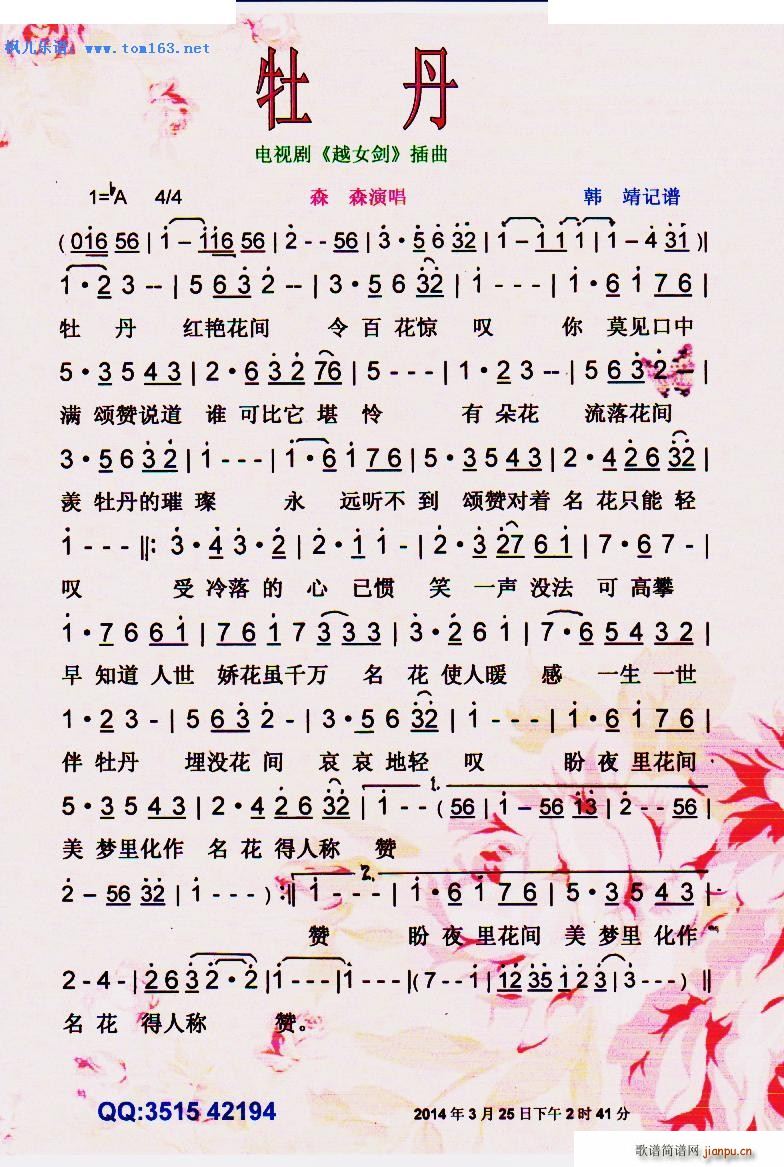 枫儿乐谱 www.tom163.net
牡 丹
电视剧《越女剑》插曲
1=♭A 4/4 森 森演唱 韩 靖记谱
( 016 56 | 1 – 116 56 | 2 - - 56 | 3 · 5 6 32 | 1 – 1 1 1 | 1 – 4 31 ) ||
1 · 2 3 -- | 5 6 3 2 -- | 3 · 5 6 32 | 1 - - - | 1 · 6 1 7 6 |
牡 丹 红艳花间 令 百 花惊 叹 你 莫见口中
5 · 3 5 4 3 | 2 · 6 3 2 76 | 5 - - - | 1 · 2 3 -- | 5 6 3 2 – |
满 颂赞说道 谁 可比它 堪 怜 有 朵花 流落花间
3 · 5 6 32 | 1 - - - | 1 · 6 1 7 6 | 5 · 3 5 4 3 | 2 · 4 2 6 32 |
羡 牡丹的璀 璨 永 远听不 到 颂赞对着 名 花只能 轻
1 - - - ||: 3 · 4 3 · 2 | 2 · 1 1 - | 2 · 3 27 6 1 | 7 6 7 - |
叹 受 冷落 的 心 已惯 笑 一声 没法 可 高攀
1 · 7 6 6 1 | 7 6 1 7 3 3 3 | 3 · 2 6 1 | 7 · 6 5 4 3 2 |
早 知道 人世 娇花虽千万 名 花 使人暖 感 一生 一世
1 · 2 3 - | 5 6 3 2 - | 3 · 5 6 32 | 1 - - - | 1 · 6 1 7 6 |
伴 牡丹 埋没花 间 哀 哀 地轻 叹 盼 夜 里 花间
5 · 3 5 4 3 | 2 · 4 2 6 32 | 1. 1 - - ( 56 | 1 – 56 13 | 2 - - 56 |
美 梦里化作 名 花 得人称 赞
2 – 56 32 | 1 - - - ) :|| 2. 1 - - - | 1 · 6 1 7 6 | 5 · 3 5 4 3 |
赞 盼 夜 里花间 美 梦里 化作
2 - 4 - | 2 6 3 2 · 2 | 1 - - - | 1 - - - | ( 7 - - 1 | 12 35 1 2 3 | 3 - - - ) ||
名 花 得人称 赞。
QQ:3515 42194
2014 年 3 月 25 日下午 2 时 41 分
歌谱简谱网
jianpu.cn